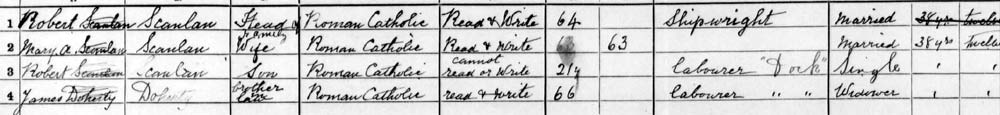 1 Robert Scanlan Scanlan Head of Family Roman Catholic Read & Write 64 Shipwright Married 38 yrs twelve
2 Mary A Scanlan Scanlan Wife Roman Catholic Read & Write 63 Married 38 yrs twelve
3 Robert Scanlan Scanlan Son Roman Catholic cannot read or Write 21 labourer "Dock" Single
4 James Doherty Doherty brother law Roman Catholic read & write 66 labourer " " Widower